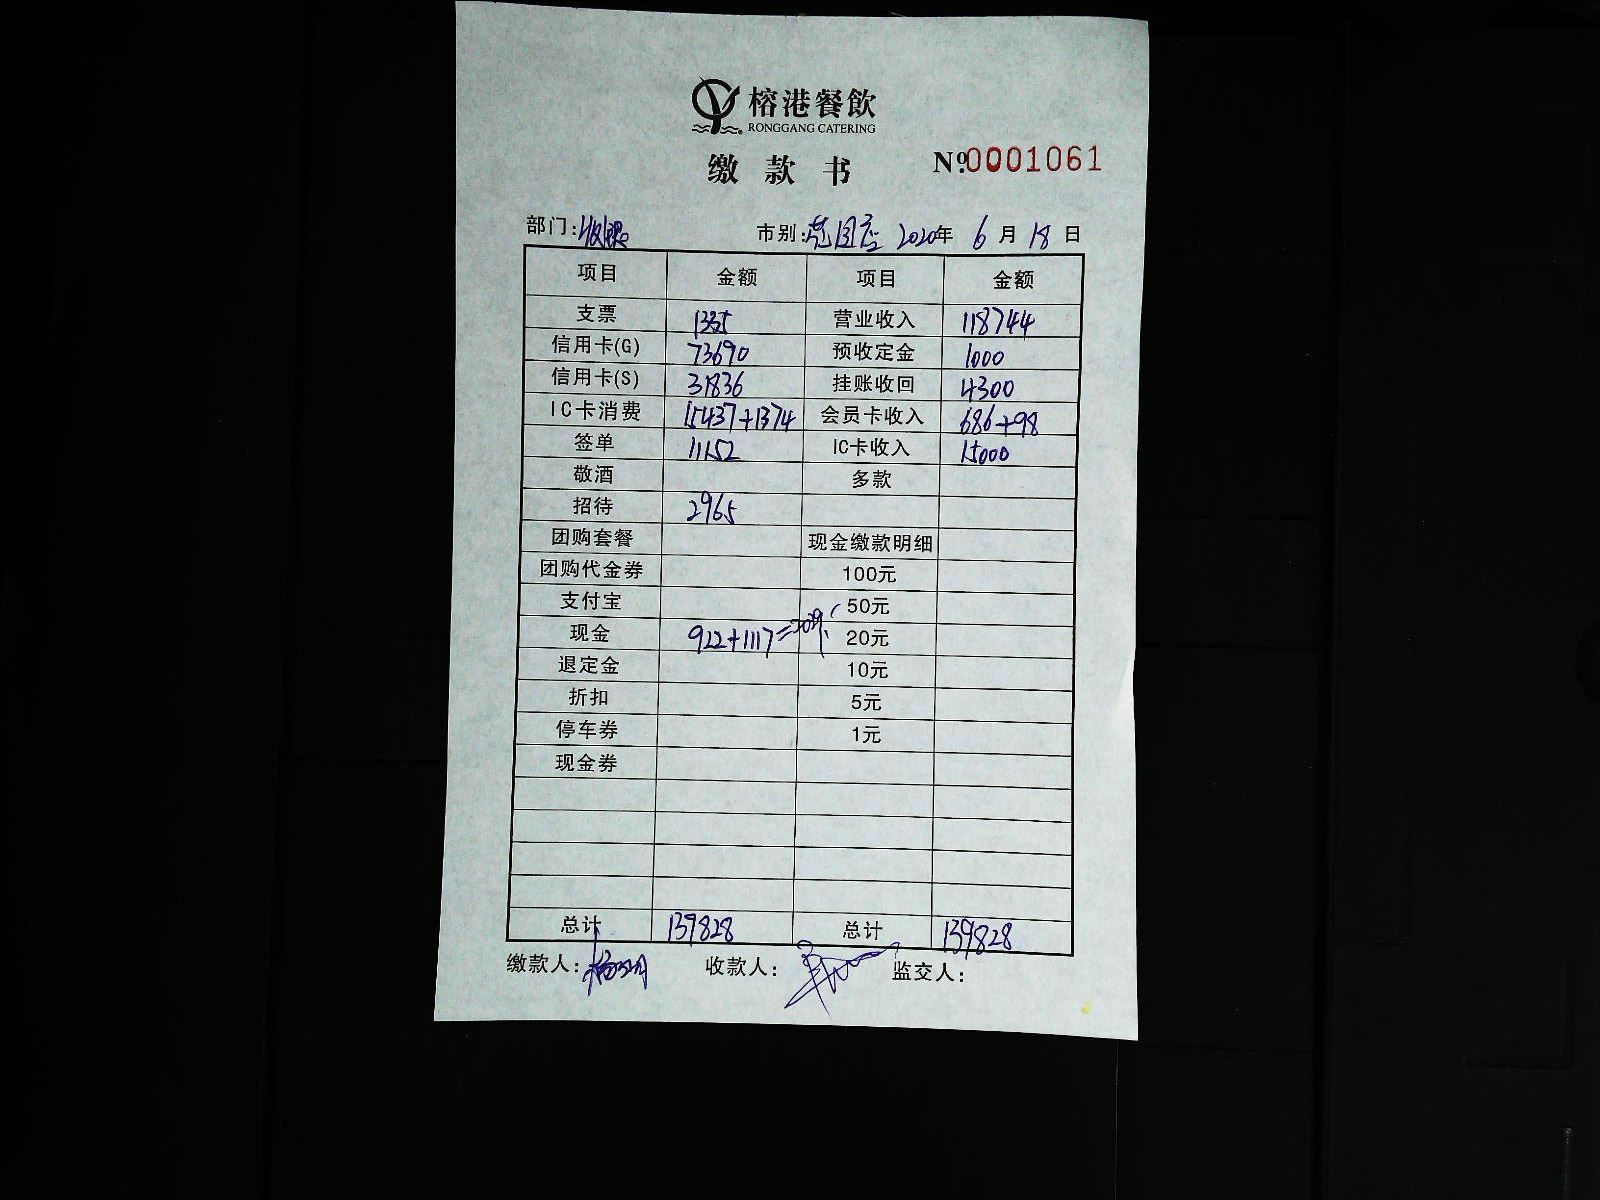 榕港餐飲
RONGGANG CATERING
缴款书 №0001061
部门:收银 市别: 2020年 6月 18日
项目 金额 项目 金额
支票 1335 营业收入 118744
信用卡(G) 73690 预收定金 1000
信用卡(S) 31836 挂账收回 4300
IC卡消费 15437+1374 会员卡收入 686+98
签单 11152 IC卡收入 15000
敬酒 多款
招待 2965
团购套餐 现金缴款明细
团购代金券 100元
支付宝 50元
现金 922+1117=2039 20元
退定金 10元
折扣 5元
停车券 1元
现金券
总计 139828 总计 139828
缴款人: 收款人: 监交人: